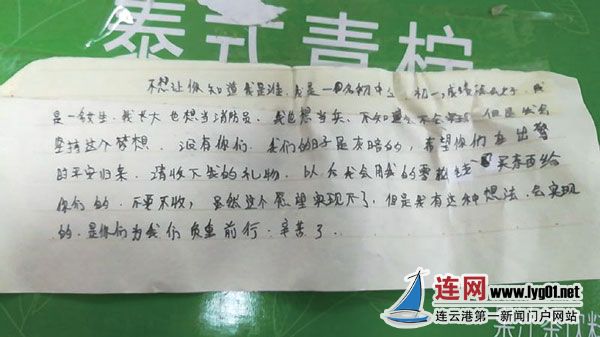 泰式青柠
不想让你知道我是谁，我是一名初中生，初一，成绩
是一女生，我长大也想当消防员，我也想当兵，不知重 会不会实现，但是我会
坚持这个梦想，没有你们，我们的日子是灰暗的，希望你们在出警
时平安归来，请收下我的礼物，以后我会用我的零花钱 买东西给
你们的，不要不收，虽然这个愿望实现不了，但是我有这种想法，会实现
的，是你们为我们负重前行，辛苦了。
连网 www.lyg01.net
连云港第一新闻门户网站
茶饮料